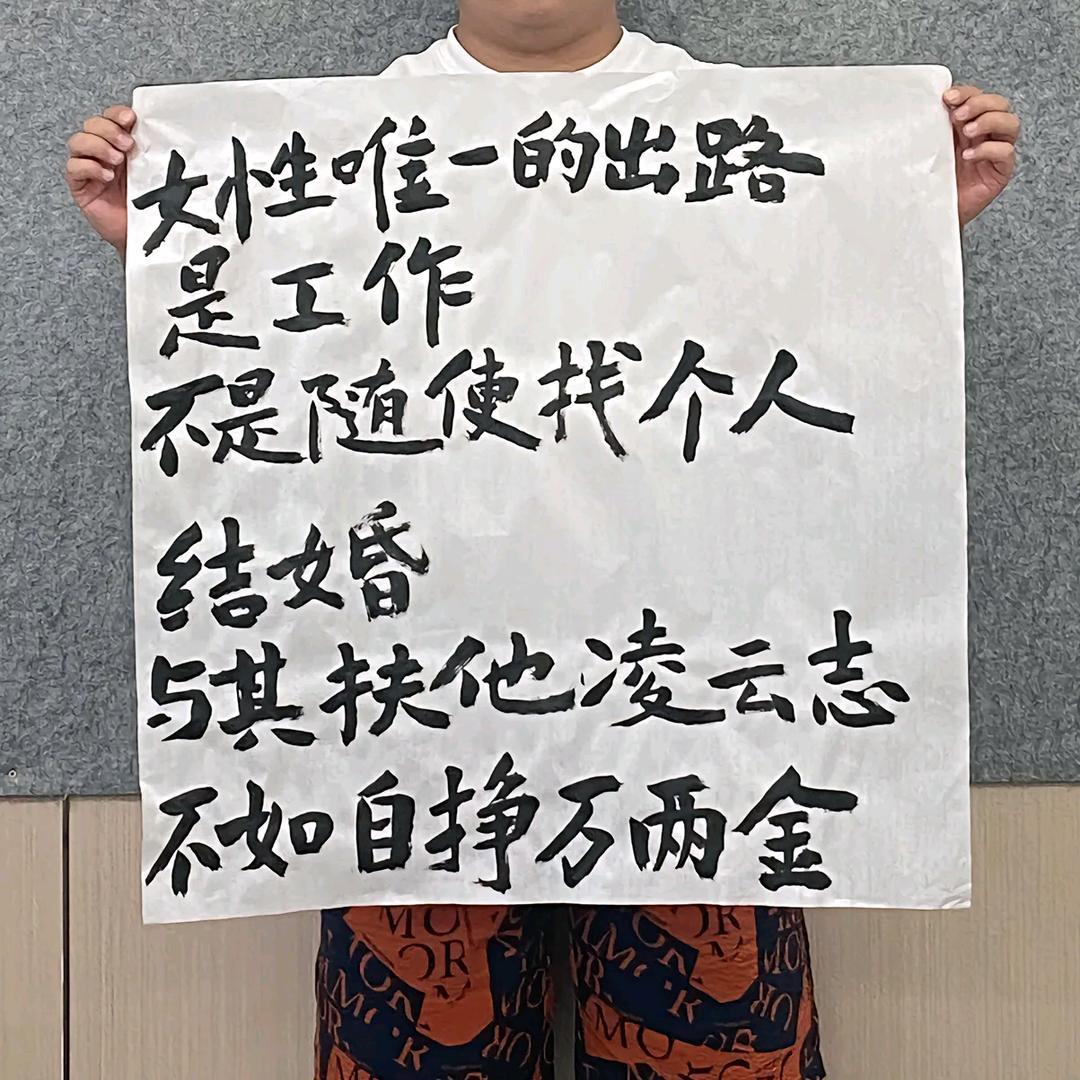 女性唯一的出路
是工作
不是随便找个人
结婚
与其扶他凌云志
不如自挣万两金